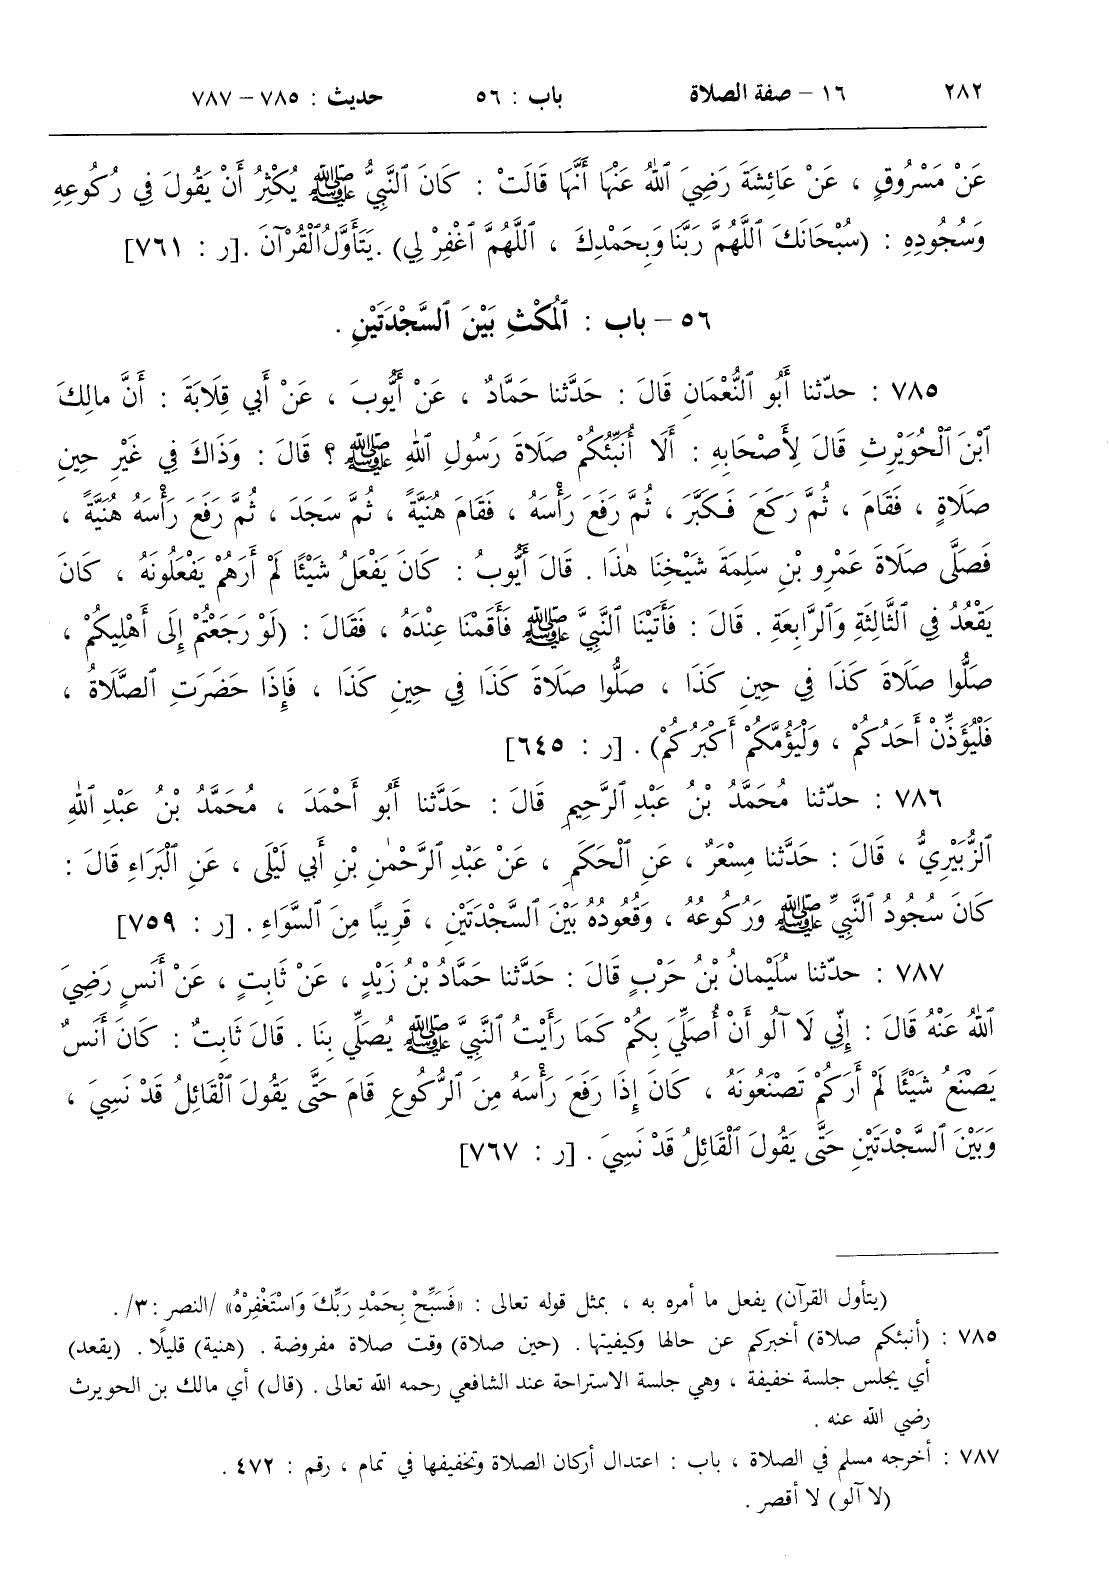 ٢٨٢ ١٦ – صفة الصلاة باب : ٥٦ حديث : ٧٨٥ – ٧٨٧
عَنْ مَسْرُوقٍ ، عَنْ عَائِشَةَ رَضِيَ ٱللهُ عَنْهَا أَنَّهَا قَالَتْ : كَانَ ٱلنَّبِيُّ ﷺ يُكْثِرُ أَنْ يَقُولَ فِي رُكُوعِهِ
وَسُجُودِهِ : (سُبْحَانَكَ ٱللَّهُمَّ رَبَّنَا وَبِحَمْدِكَ ، ٱللَّهُمَّ ٱغْفِرْ لِي) . يَتَأَوَّلُ ٱلْقُرْآنَ . [ر : ٧٦١]
٥٦ – باب : ٱلْمُكْثِ بَيْنَ ٱلسَّجْدَتَيْنِ .
٧٨٥ : حدّثنا أَبُو ٱلنُّعْمَانِ قَالَ : حَدَّثنا حَمَّادٌ ، عَنْ أَيُّوبَ ، عَنْ أَبِي قِلَابَةَ : أَنَّ مالِكَ
ٱبْنَ ٱلْحُوَيْرِثِ قَالَ لِأَصْحَابِهِ : أَلَا أُنَبِّئُكُمْ صَلَاةَ رَسُولِ ٱللهِ ﷺ ؟ قَالَ : وَذَاكَ فِي غَيْرِ حِينِ
صَلَاةٍ ، فَقَامَ ، ثُمَّ رَكَعَ فَكَبَّرَ ، ثُمَّ رَفَعَ رَأْسَهُ ، فَقَامَ هُنَيَّةً ، ثُمَّ سَجَدَ ، ثُمَّ رَفَعَ رَأْسَهُ هُنَيَّةً ،
فَصَلَّى صَلَاةَ عَمْرِو بْنِ سَلِمَةَ شَيْخِنَا هٰذَا . قَالَ أَيُّوبُ : كَانَ يَفْعَلُ شَيْئًا لَمْ أَرَهُمْ يَفْعَلُونَهُ ، كَانَ
يَقْعُدُ فِي ٱلثَّالِثَةِ وَٱلرَّابِعَةِ . قَالَ : فَأَتَيْنَا ٱلنَّبِيَّ ﷺ فَأَقَمْنَا عِنْدَهُ ، فَقَالَ : (لَوْ رَجَعْتُمْ إِلَى أَهْلِيكُمْ ،
صَلُّوا صَلَاةَ كَذَا فِي حِينِ كَذَا ، صَلُّوا صَلَاةَ كَذَا فِي حِينِ كَذَا ، فَإِذَا حَضَرَتِ ٱلصَّلَاةُ ،
فَلْيُؤَذِّنْ أَحَدُكُمْ ، وَلْيَؤُمَّكُمْ أَكْبَرُكُمْ) . [ر : ٦٤٥]
٧٨٦ : حدّثنا مُحَمَّدُ بْنُ عَبْدِ ٱلرَّحِيمِ قَالَ : حَدَّثنا أَبُو أَحْمَدَ ، مُحَمَّدُ بْنُ عَبْدِ ٱللهِ
ٱلزُّبَيْرِيُّ ، قَالَ : حَدَّثنا مِسْعَرٌ ، عَنِ ٱلْحَكَمِ ، عَنْ عَبْدِ ٱلرَّحْمٰنِ بْنِ أَبِي لَيْلَى ، عَنِ ٱلْبَرَاءِ قَالَ :
كَانَ سُجُودُ ٱلنَّبِيِّ ﷺ وَرُكُوعُهُ ، وَقُعُودُهُ بَيْنَ ٱلسَّجْدَتَيْنِ ، قَرِيبًا مِنَ ٱلسَّوَاءِ . [ر : ٧٥٩]
٧٨٧ : حدّثنا سُلَيْمانُ بْنُ حَرْبٍ قَالَ : حَدَّثنا حَمَّادُ بْنُ زَيْدٍ ، عَنْ ثَابِتٍ ، عَنْ أَنَسٍ رَضِيَ
ٱللهُ عَنْهُ قَالَ : إِنِّي لَا آلُو أَنْ أُصَلِّيَ بِكُمْ كَمَا رَأَيْتُ ٱلنَّبِيَّ ﷺ يُصَلِّي بِنَا . قَالَ ثَابِتٌ : كَانَ أَنَسٌ
يَصْنَعُ شَيْئًا لَمْ أَرَكُمْ تَصْنَعُونَهُ ، كَانَ إِذَا رَفَعَ رَأْسَهُ مِنَ ٱلرُّكُوعِ قَامَ حَتَّى يَقُولَ ٱلْقَائِلُ قَدْ نَسِيَ ،
وَبَيْنَ ٱلسَّجْدَتَيْنِ حَتَّى يَقُولَ ٱلْقَائِلُ قَدْ نَسِيَ . [ر : ٧٦٧]
(يتأول القرآن) يفعل ما أمره به ، بمثل قوله تعالى : «فَسَبِّحْ بِحَمْدِ رَبِّكَ وَاسْتَغْفِرْهُ» /النصر : ٣/ .
٧٨٥ : (أنبئكم صلاة) أخبركم عن حالها وكيفيتها . (حين صلاة) وقت صلاة مفروضة . (هنية) قليلًا . (يقعد)
أي يجلس جلسة خفيفة ، وهي جلسة الاستراحة عند الشافعي رحمه الله تعالى . (قال) أي مالك بن الحويرث
رضي الله عنه .
٧٨٧ : أخرجه مسلم في الصلاة ، باب : اعتدال أركان الصلاة وتخفيفها في تمام ، رقم : ٤٧٢ .
(لا آلو) لا أقصر .